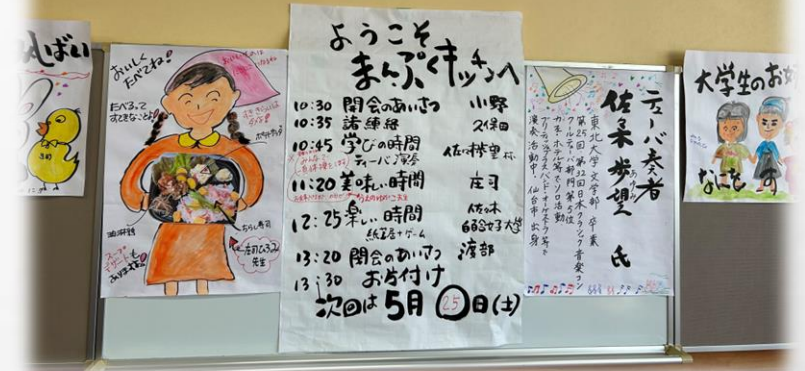 おいしく
たべてね!
たべるって
すてきなことよ!
ちらし寿司
先生
ようこそ
まんぷくキッチンへ
10:30 開会のあいさつ 小野
10:35 諸連絡 久保田
10:45 学びの時間
11:20 美味い時間 庄司
12:25 楽しい時間 佐々木
紙芝居+ゲーム
13:20 閉会のあいさつ 渡部
13:30 お片付け
次回は5月25日(土)
テューバ奏者
佐々木 歩望 氏
あゆみ
東北大学文学部 卒業
第25回 第32回日本クラシック音楽コン
クールテューバ部門第5位
カフェ・ホテル等でソロ活動
演奏活動中。仙台市出身
大学生のお
なにを